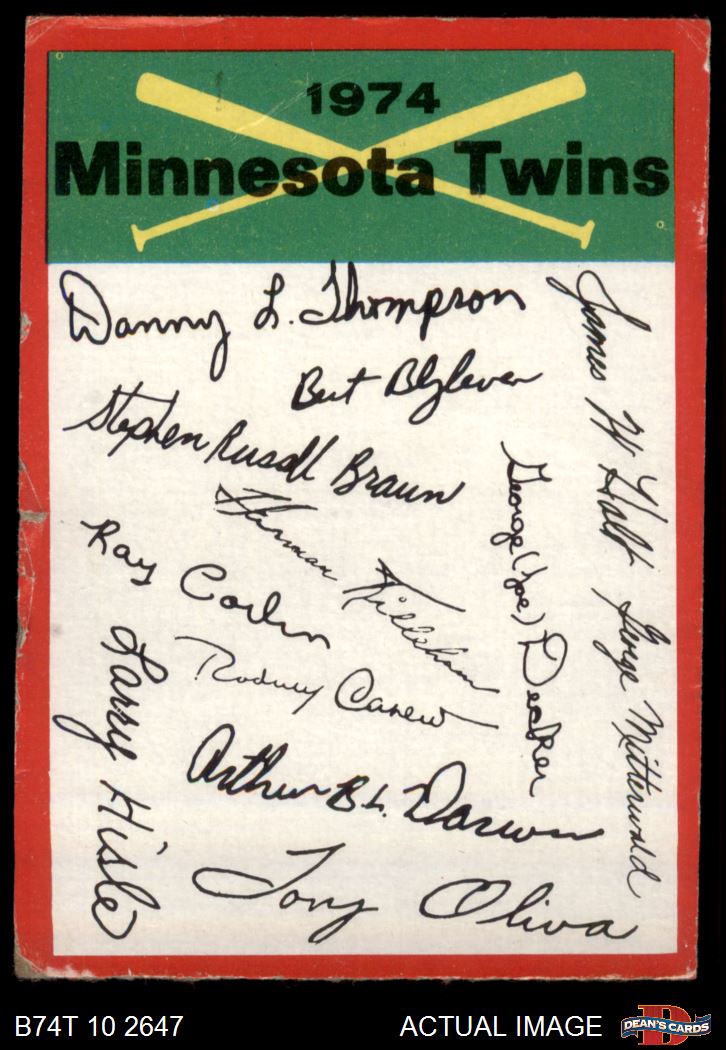 1974
Minnesota Twins
Danny L. Thompson
James W Holt
Bert Blyleven
Stephen Russell Braun
George (Joe) Decker
Harman Killebrew
George Mitterwald
Ray Corbin
Rodney Carew
Larry Hisle
Arthur B L. Darwin
Tony Oliva
B74T 10 2647
ACTUAL IMAGE
D
DEAN'S CARDS